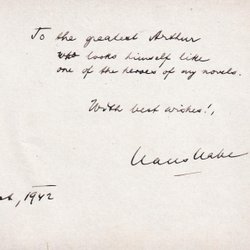 To the greatest Arthur
who looks himself like
one of the heroes of my novels.
With best wishes!,
Hans Habe
1942